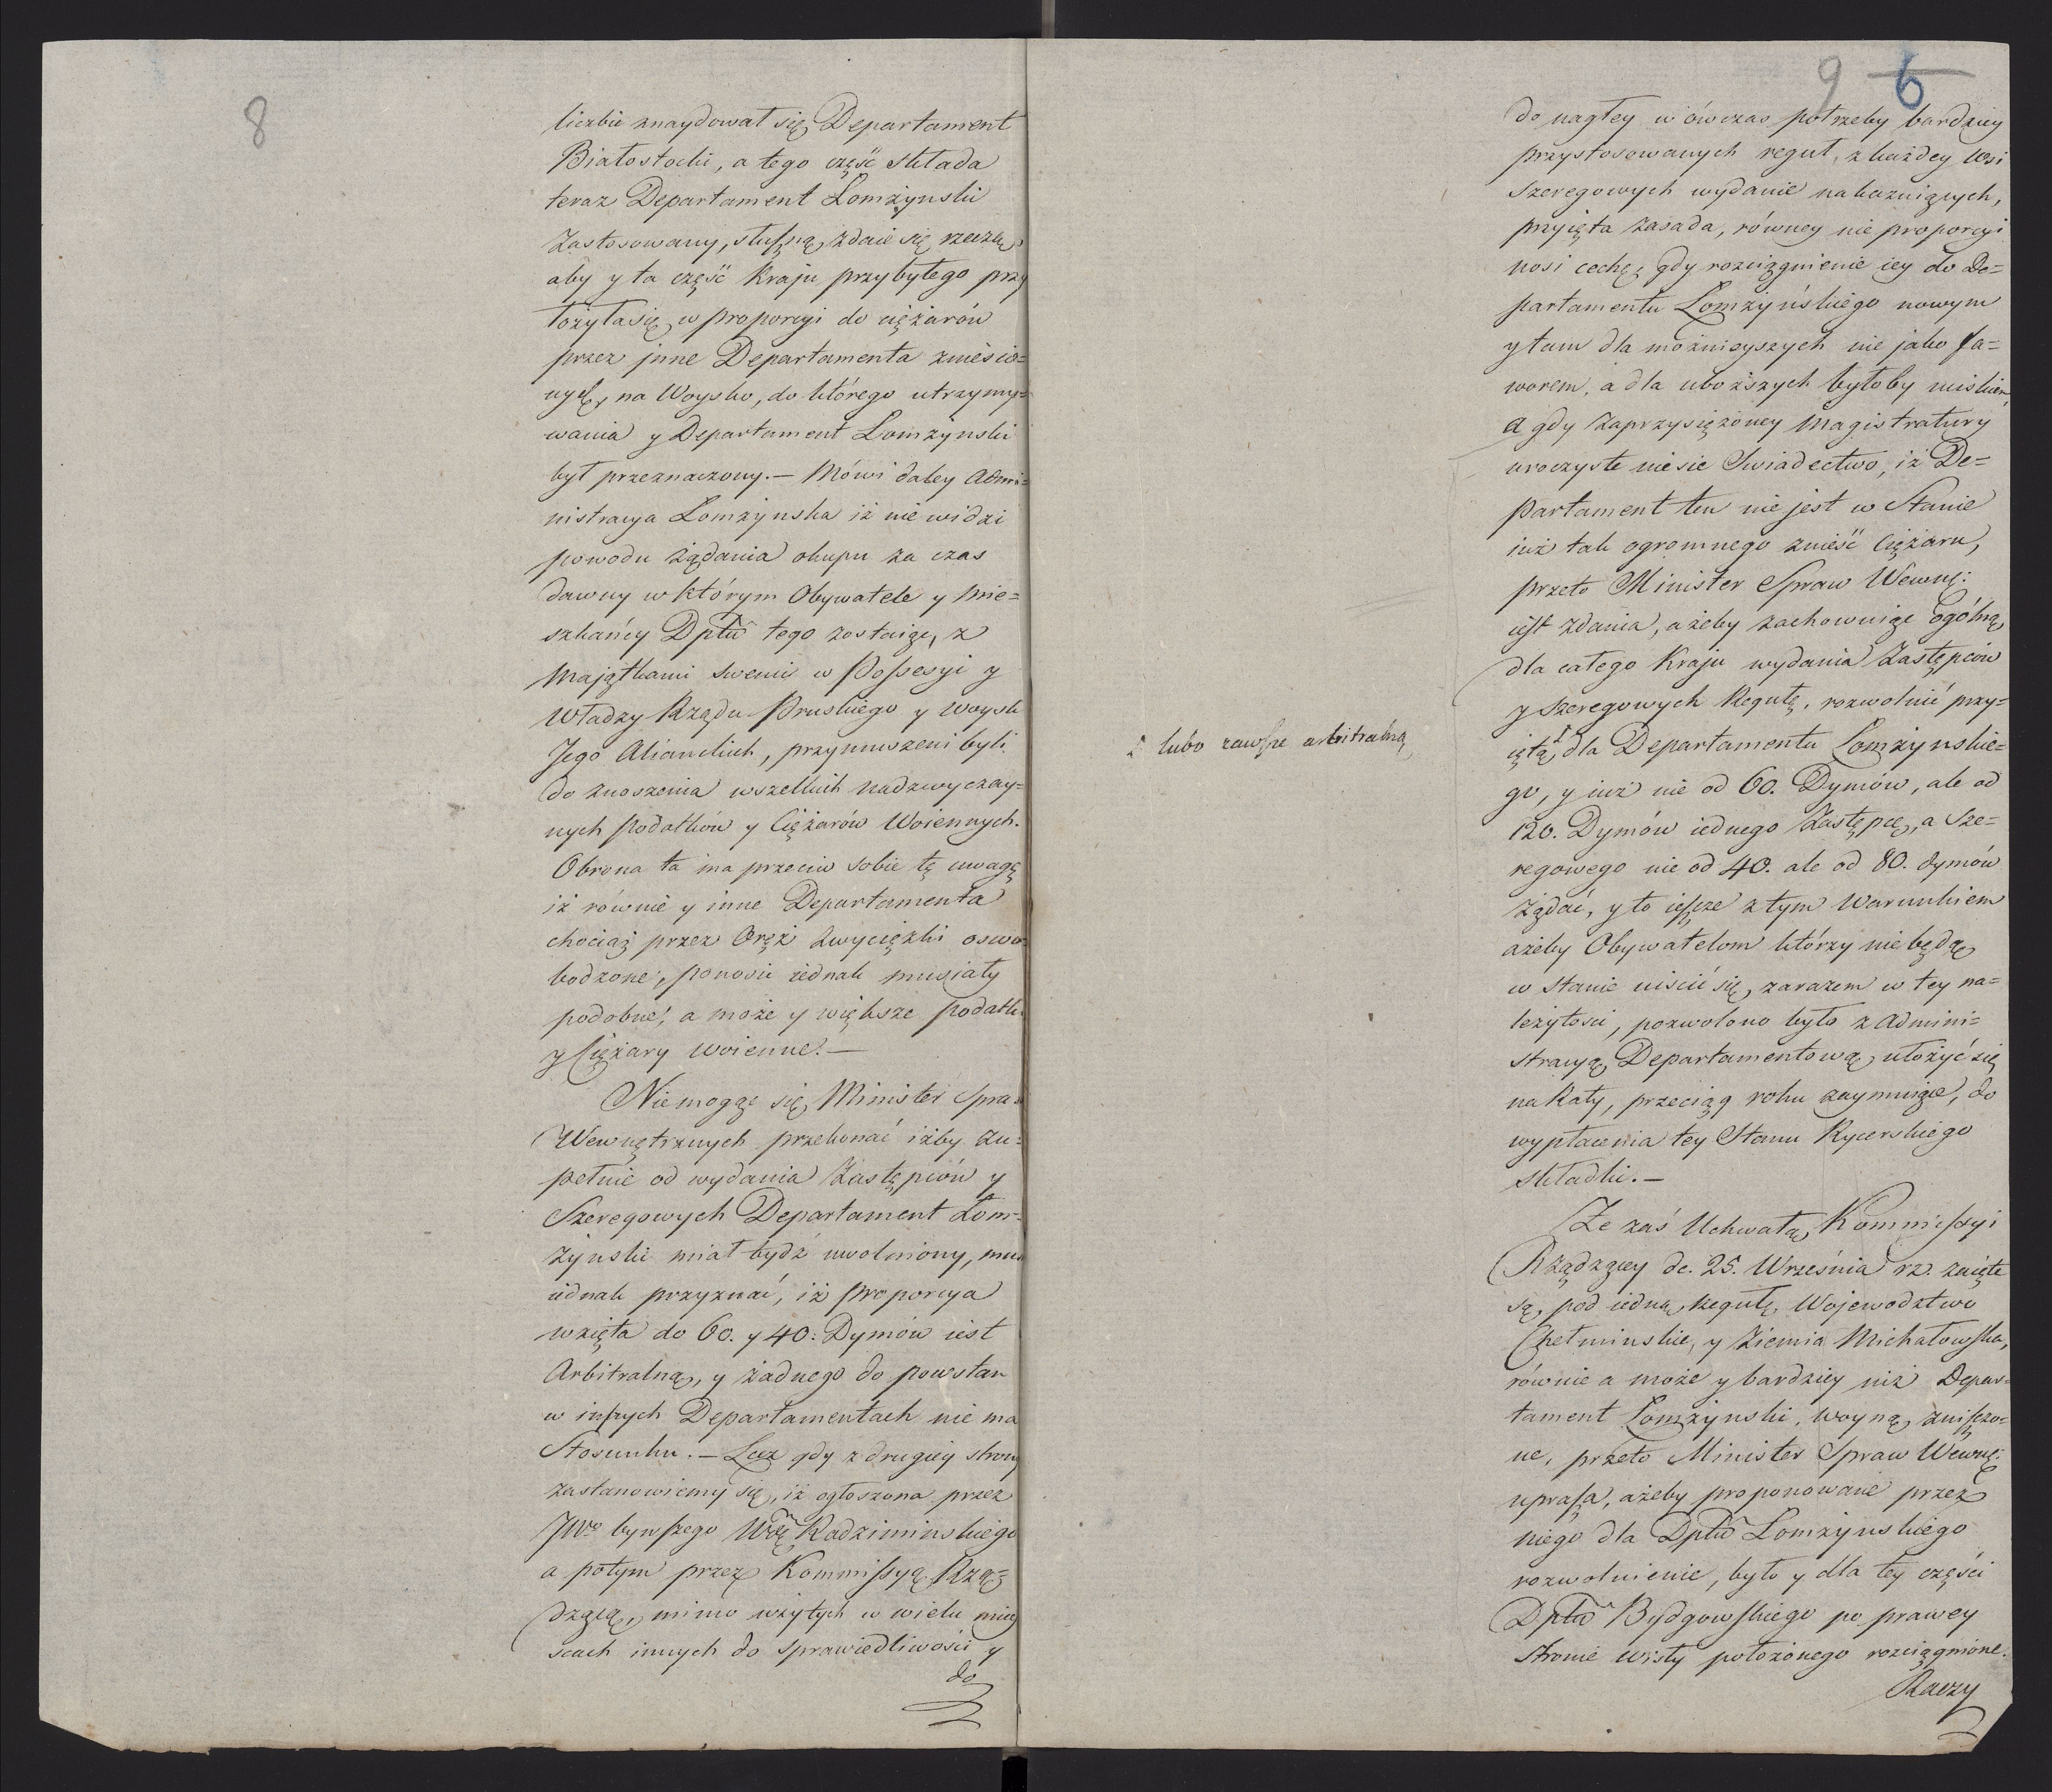 8
liczbie znaydował się Departament
Białostocki, a tego część składa
teraz Departament Łomżynski
Zastosowany, słuszną zdaie się rzeczą,
aby y ta część Kraju przybyłego przy
łożyła się w proporcyi do ciężarów
przez jnne Departamenta zniesio=
nych, na Woysko, do którego utrzymy=
wania y Departament Łomżynski
był przeznaczony. — Mówi daley Admi=
nistracya Łomżynska iż nie widzi
powodu żądania okupu za czas
dawny w którym Obywatele y mie=
szkańcy Dpttu tego zostaiąc, z
Majątkami swemi w Possesyi y
Władzy Rządu Pruskiego y woysk
Jego Alianckich, przymuszeni byli
do znoszenia wszelkich nadzwyczay=
nych Podatków y Ciężarów Woiennych.
Obrona ta ma przeciw sobie tę uwagę
iż równie y inne Departamenta
chociaż przez Oręż zwycięzki oswo
bodzone, ponosić iednak musiały
podobne, a może y większe podatki
y Ciężary woienne. —
Niemogąc się Minister Spraw
Wewnętrznych przekonać iżby zu=
pełnie od wydania Zastępców y
Szeregowych Departament Łom=
żynski miał bydź uwolniony, musi
iednak przyznać, iż proporcya
wzięta do 60. y 40. Dymów iest
Arbitralną, y żadnego do powstań
w innych Departamentach nie ma
Stosunku. — Lecz gdy z drugiey strony
zastanowiemy się, iż ogłoszona przez
JWo bywszego Wdę Radziminskiego
a potym przez Kommissyą Rzą=
dzącą, mimo użytych w wielu miey
scach innych do sprawiedliwości y
do
9 6
do nagłey w ówczas potrzeby bardziey
przystosowanych reguł, z każdey Wsi
Szeregowych wydanie nakazuiących,
przyięta zasada, równey nie proporcyi
nosi cechę, gdy rozciągnienie iey do De=
partamentu Łomżyńskiego nowym
y tam dla możnieyszych nie jako fa=
worem, a dla uboższych byłoby uciskiem,
A gdy zaprzysiężoney Magistratury
uroczyste niesie Swiadectwo, iż De=
partament ten nie jest w Stanie
iuż tak ogromnego znieść Ciężaru,
przeto Minister Spraw Wewnę:
iest zdania, ażeby zachowuiąc Ogólną
dla całego Kraju wydania Zastępców
y Szeregowych Regułę, rozwolnić przy=
lubo zawsze arbitralną
iętą dla Departamentu Łomżynskie=
go, y iuż nie od 60. Dymów, ale od
120. Dymów iednego Zastępcę, a Sze=
regowego nie od 40. ale od 80. dymów
żądać, y to ieszcze z tym Warunkiem
ażeby Obywatelom którzy nie będą
w stanie uiścić się, zarazem w tey na=
leżytości, pozwolono było z Admini=
stracyą Departamentową ułożyć się
na Raty, przeciąg roku zaymuiące, do
wypłacenia tey Stanu Rycerskiego
składki. —
Ze zaś Uchwałą Kommissyi
Rządzącey de. 25. Września rz. zaięte
są, pod iedną Regułę, Wojewodztwo
Chełminskie, y Ziemia Michałowska,
równie a może y bardziey niż Depar=
tament Łomżynski, woyną zniszczo=
ne, przeto Minister Spraw Wewnę:
uprasza, ażeby proponowane przez
niego dla Dpttu Łomżynskiego
rozwolnienie, było y dla tey części
Dpttu Bydgowskiego po prawey
stronie Wisły położonego rozciągnione.
Raczy